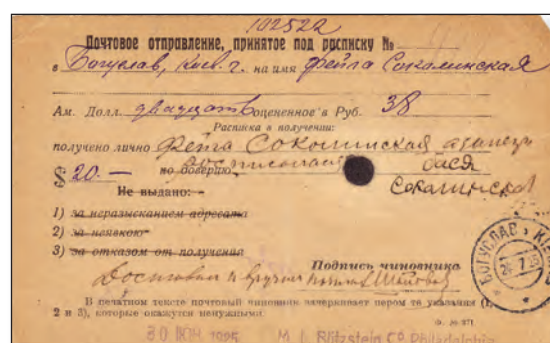 102522
Почтовое отправление, принятое под расписку №
в Богуслав, Киев. г. на имя Фейга Соколинская
Ам. Долл. двадцать оцененное в Руб. 38
Расписка в получении:
получено лично Фейга Соколинская а за нее
$ 20.— по доверию росписалась Бася
Не выдано: Соколинская
1) за неразысканием адресата
2) за неявкою
3) за отказом от получения
Подпись чиновника
Доставил и вручил
В печатном тексте почтовый чиновник зачеркивает пером те указания (1,
2 и 3), которые окажутся ненужными.
Ф. № 371
БОГУСЛАВ
30 1925 M. L. Blitzstein Co Philadelphia